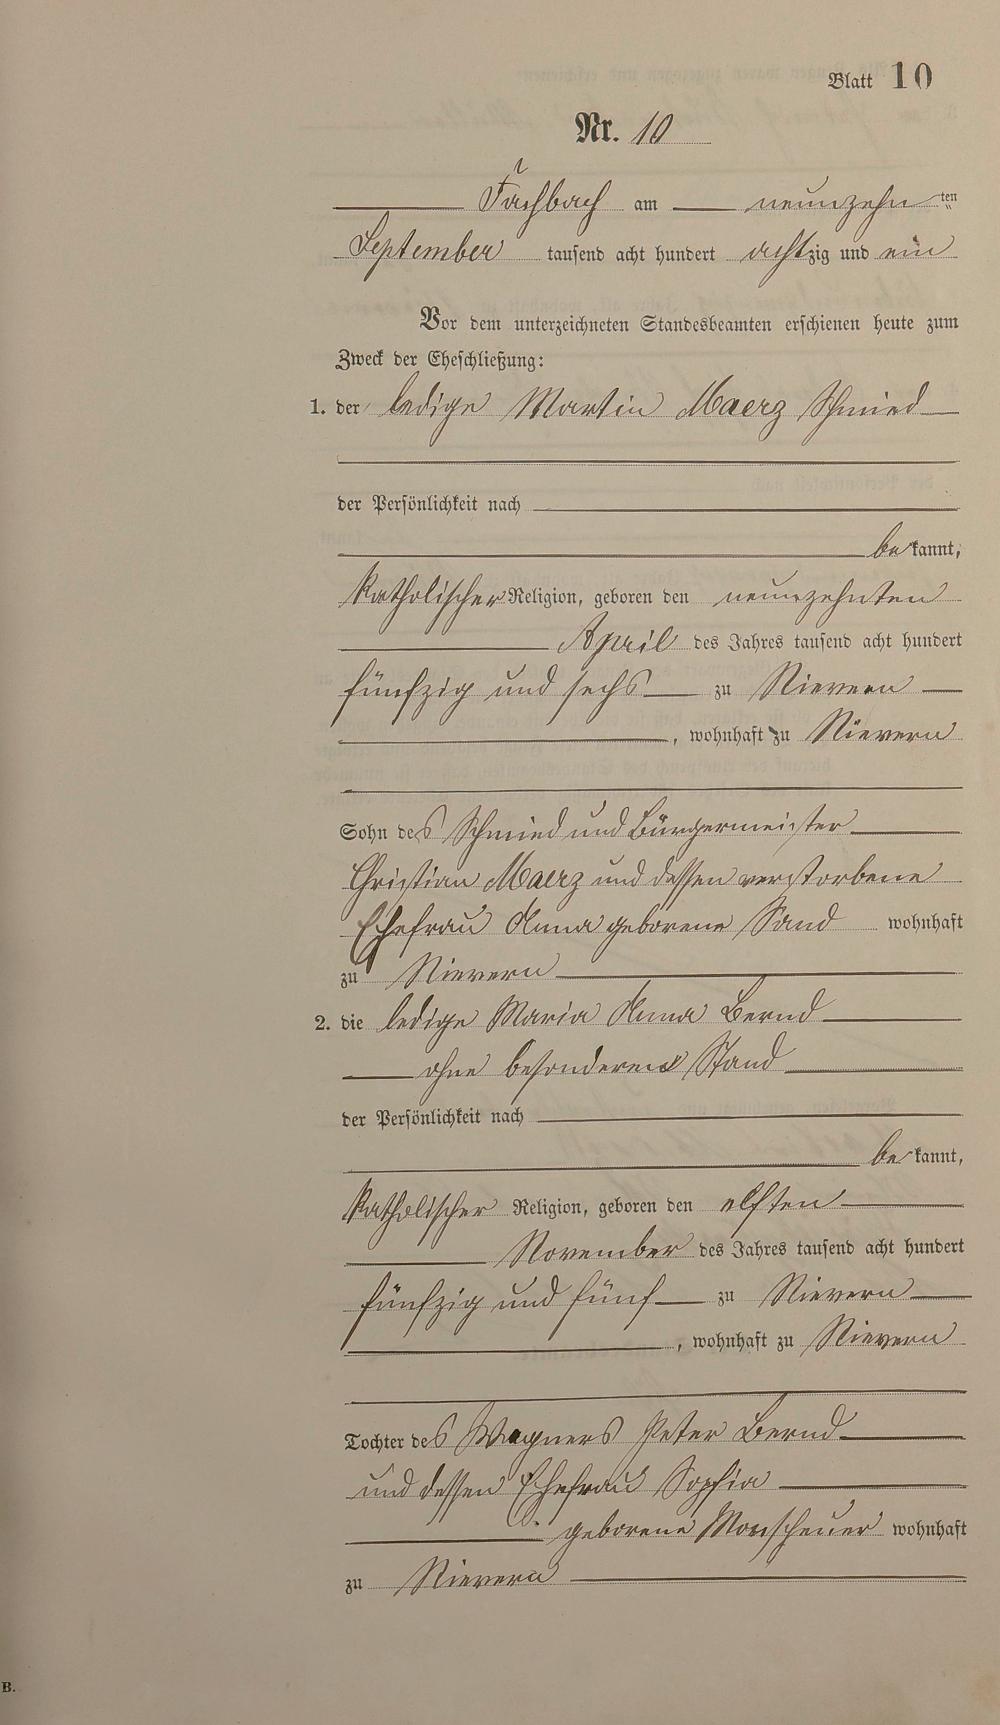 Blatt 10
Nr. 10
Fachbach am neunzehn ten
September tausend acht hundert achtzig und ein
Vor dem unterzeichneten Standesbeamten erschienen heute zum
Zweck der Eheschließung:
1. der ledige Martin Maerz Schmied
der Persönlichkeit nach
be kannt,
katholischer Religion, geboren den neunzehnten
April des Jahres tausend acht hundert
fünfzig und sechs zu Nievern
, wohnhaft zu Nievern
Sohn des Schmied und Bürgermeister
Christian Maerz und dessen verstorbene
Ehefrau Anna geborene Sand wohnhaft
zu Nievern
2. die ledige Maria Anna Bernd
ohne besonderen Stand
der Persönlichkeit nach
be kannt,
katholischer Religion, geboren den elften
November des Jahres tausend acht hundert
fünfzig und fünf zu Nievern
, wohnhaft zu Nievern
Tochter des Wagners Peter Bernd
und dessen Ehefrau Sophia
geborene Monscheuer wohnhaft
zu Nievern
B.